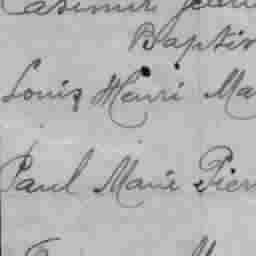 Casimir
Baptis
Louis Henri Ma
Paul Marie Pier